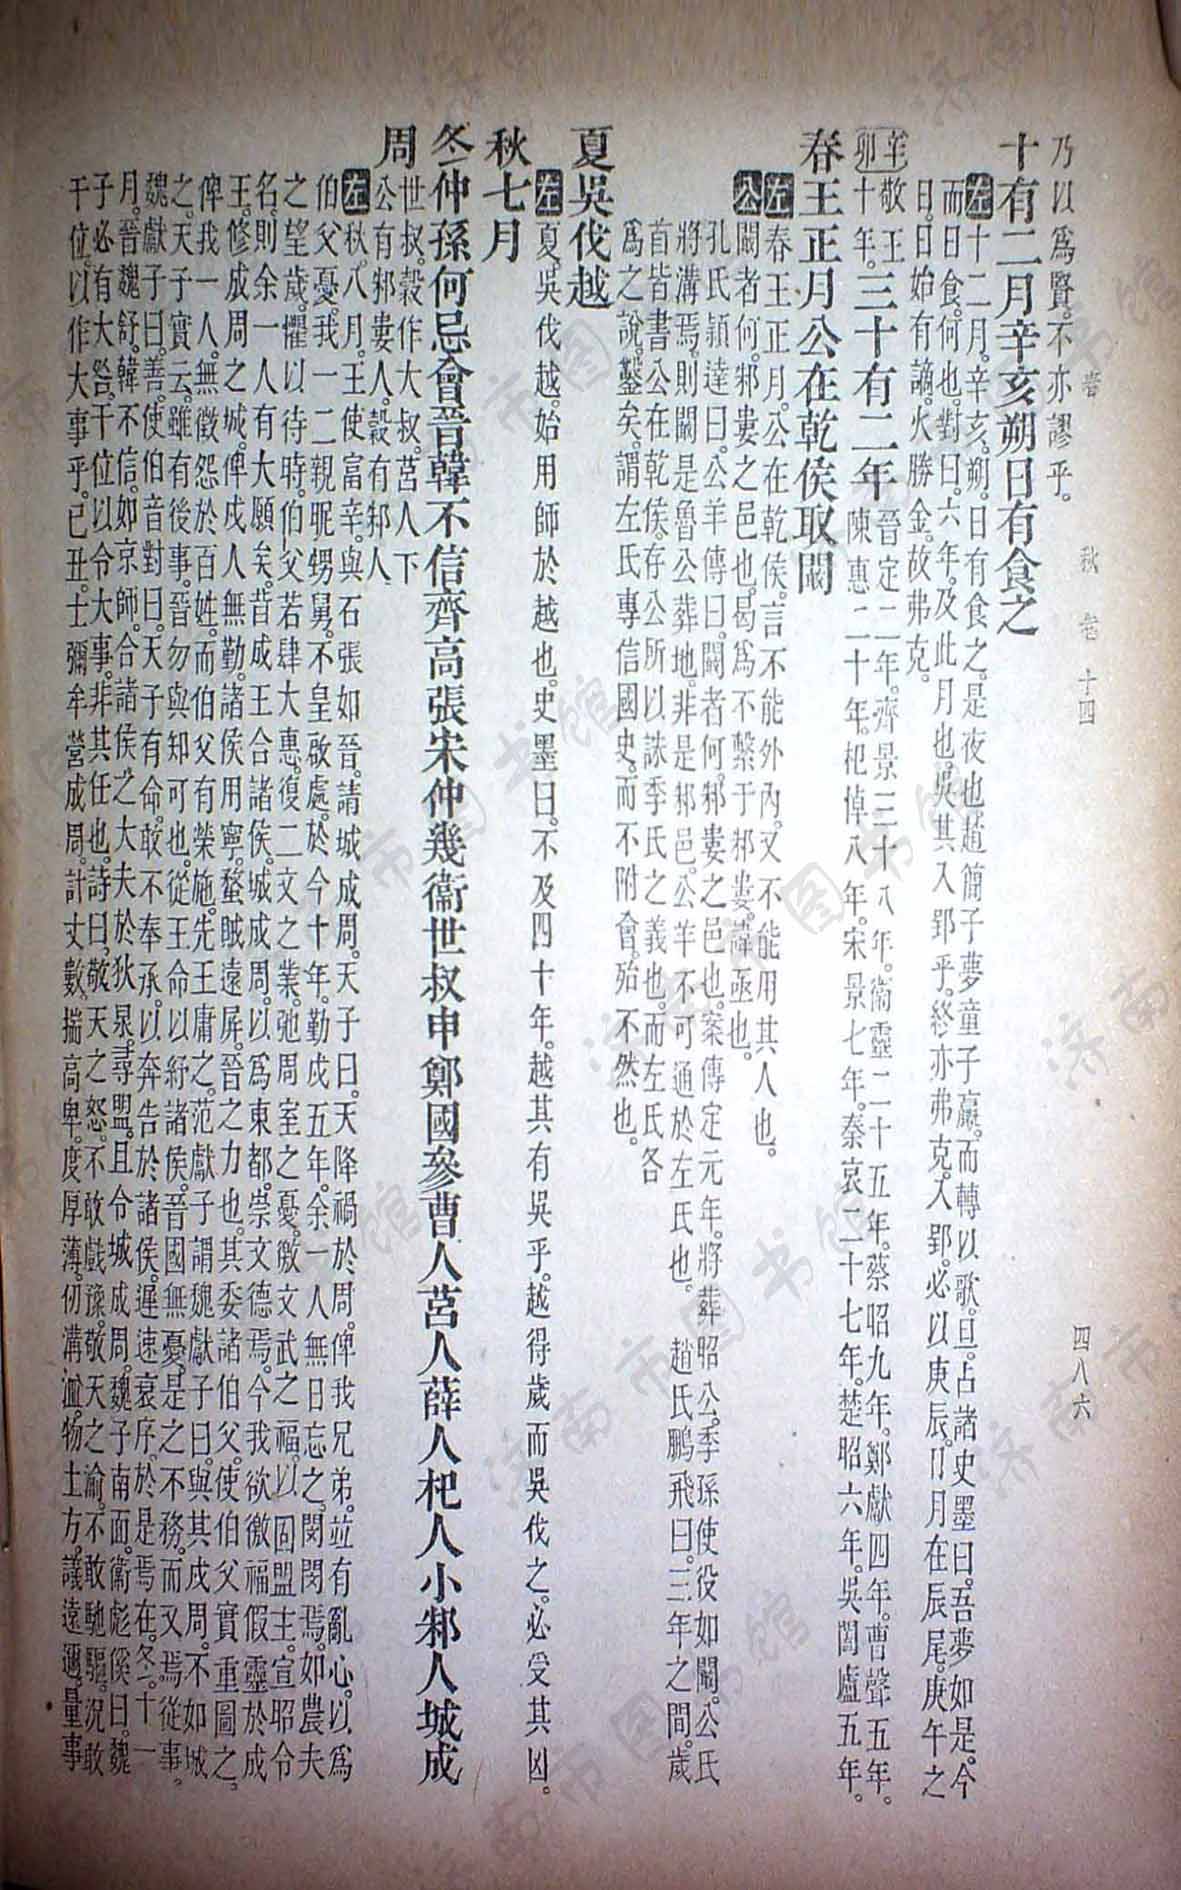 春秋 卷十四 四八六
乃以爲賢。不亦謬乎。
十有二月辛亥朔日有食之
左十二月。辛亥。朔。日有食之。是夜也。趙簡子夢童子臝。而轉以歌。旦。占諸史墨曰。吾夢如是。今
而日食。何也。對曰。六年。及此月也。吳其入郢乎。終亦弗克。入郢。必以庚辰。日月在辰尾。庚午之
日。日始有謫。火勝金。故弗克。
辛卯
敬王十年。
三十有二年
晉定二年。齊景三十八年。衞靈二十五年。蔡昭九年。鄭獻四年。曹聲五年。
陳惠二十年。杞悼八年。宋景七年。秦哀二十七年。楚昭六年。吳闔廬五年。
春王正月公在乾侯取闞
左春王正月。公在乾侯。言不能外內。又不能用其人也。
公闞者何。邾婁之邑也。曷爲不繫于邾婁。諱亟也。
孔氏穎達曰。公羊傳曰。闞者何。邾婁之邑也。案傳定元年。將葬昭公。季孫使役如闞。公氏
將溝焉。則闞是魯公葬地。非是邾邑。公羊不可通於左氏也。 趙氏鵬飛曰。三年之間。歲
首皆書公在乾侯。存公所以誅季氏之義也。而左氏各
爲之說。鑿矣。謂左氏專信國史。而不附會。殆不然也。
夏吳伐越
左夏。吳伐越。始用師於越也。史墨曰。不及四十年。越其有吳乎。越得歲而吳伐之。必受其凶。
秋七月
冬仲孫何忌會晉韓不信齊高張宋仲幾衞世叔申鄭國參曹人莒人薛人杞人小邾人城成
周
世叔。穀作大叔。莒人下
公有邾婁人。穀有邾人。
左秋。八月。王使富辛。與石張如晉。請城成周。天子曰。天降禍於周。俾我兄弟。並有亂心。以爲
伯父憂。我一二親昵甥舅。不皇啟處。於今十年。勤戍五年。余一人無日忘之。閔閔焉。如農夫
之望歲。懼以待時。伯父若肆大惠。復二文之業。弛周室之憂。徼文武之福。以固盟主。宣昭令
名。則余一人有大願矣。昔成王合諸侯。城成周。以爲東都。崇文德焉。今我欲徼福假靈於成
王。修成周之城。俾戍人無勤。諸侯用寧。蝥賊遠屏。晉之力也。其委諸伯父。使伯父實重圖之。
俾我一人。無徵怨於百姓。而伯父有榮施。先王庸之。范獻子謂魏獻子曰。與其戍周。不如城
之。天子實云。雖有後事。晉勿與知可也。從王命以紓諸侯。晉國無憂。是之不務。而又焉從事。
魏獻子曰。善。使伯音對曰。天子有命。敢不奉承。以奔告於諸侯。遲速衰序。於是焉在。冬。十一
月。晉魏舒。韓不信。如京師。合諸侯之大夫於狄泉。尋盟。且令城成周。魏子南面。衞彪傒曰。魏
子必有大咎。干位以令大事。非其任也。詩曰。敬天之怒。不敢戲豫。敬天之渝。不敢馳驅。況敢
干位。以作大事。乎。已丑。士彌牟營成周。計丈數。揣高卑。度厚薄。仞溝洫。物土方。議遠邇。量事